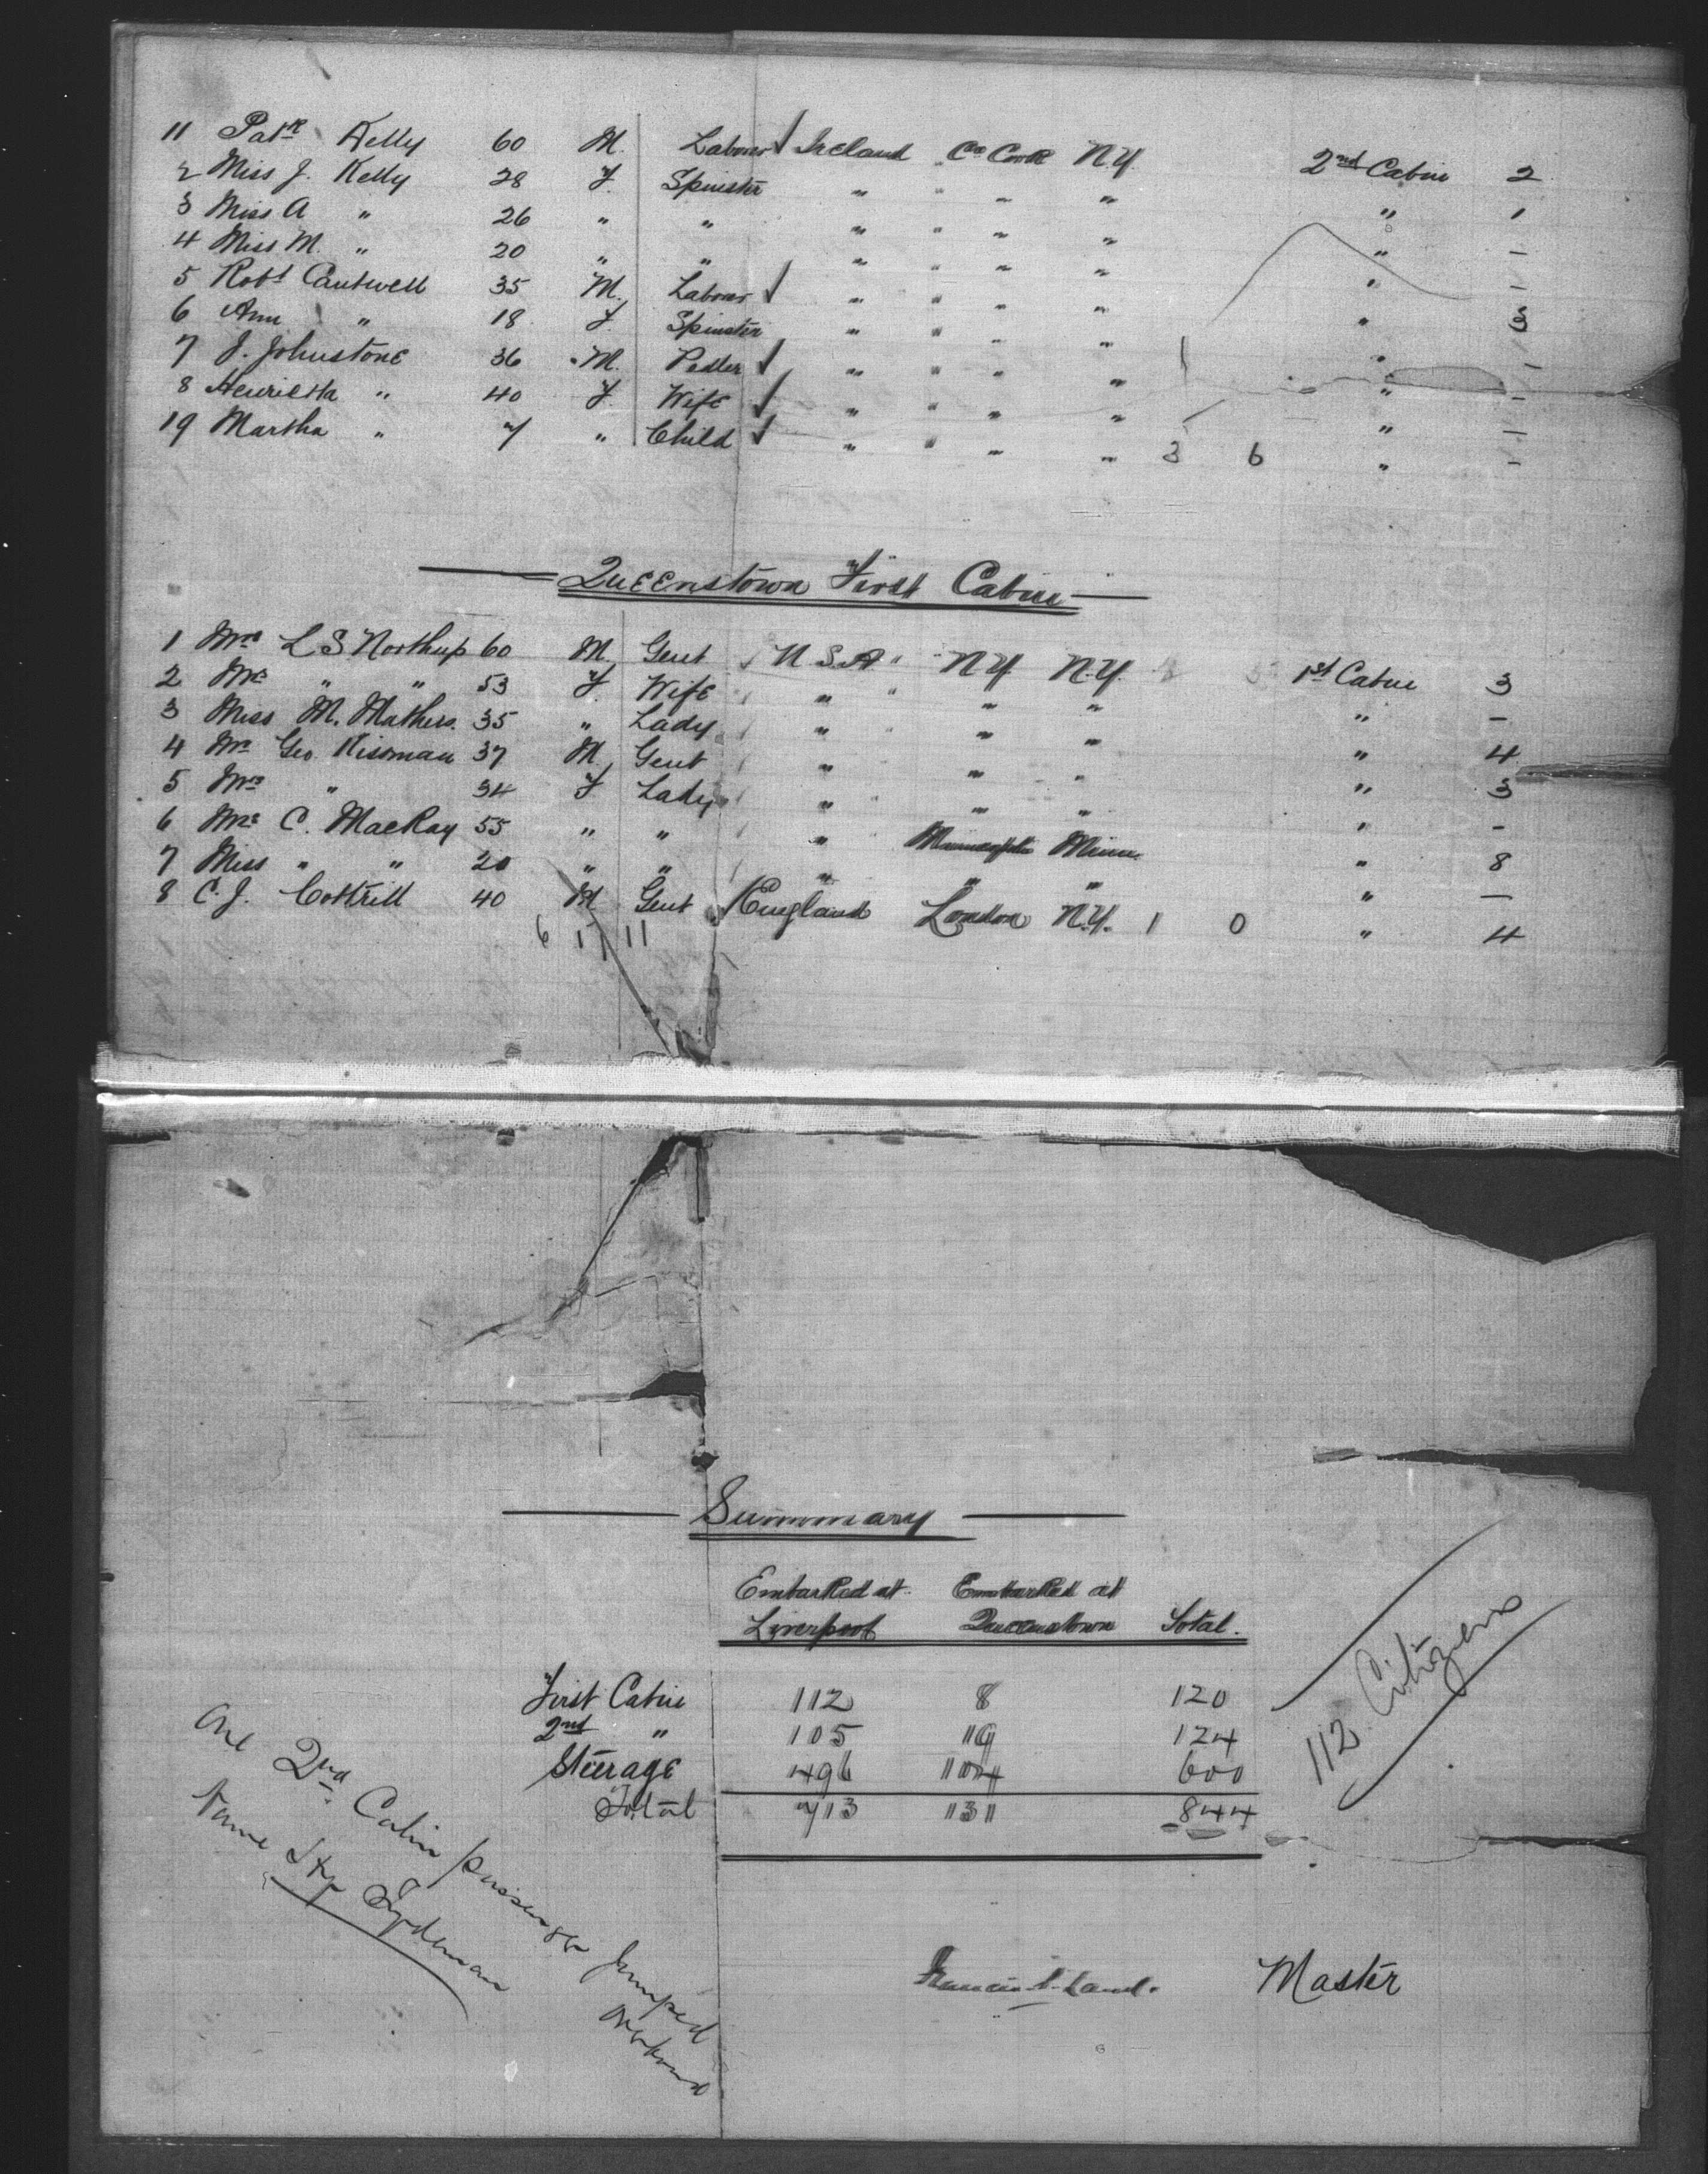 11 Patk Kelly 60 M. Labour Ireland " Co Cork N.Y. 2nd Cabin 2
2 Miss J. Kelly 28 F. Spinster " " " " " 1
3 Miss A " 26 " " " " " " " —
4 Miss M. " 20 " " " " " " " —
5 Robt Cantwell 35 M. Labour " " " " " 3
6 Ann " 18 F. Spinster " " " " " —
7 J. Johnstone 36 M. Pedler " " " " " —
8 Henrietta " 40 F. Wife " " " " " —
19 Martha " 7 " Child " " " " 3 6 " —
Queenstown First Cabin
1 L S Northup 60 M. Gent U S A " N Y N.Y. 1st Cabin 3
2 " " 53 F. Wife " " " " " —
3 Miss M. Mathers. 35 " Lady " " " " 4
4 Mr Geo. 37 M. Gent " " " " 3
5 Mrs " 34 F Lady " " " " -
6 C. MacKay 55 " " " Minneapolis Minn " 8
7 Miss " " 20 " " " " " " —
8 C. J. Cottrill 40 M Gent England London N.Y. 1 0 " 4
6 1 11
Summary
Embarked at Embarked at
Liverpool Queenstown Total.
First Cabin 112 8 120
2nd " 105 "19 124
Steerage 496 "104 600
Total 713 "131 844
112 Citizens
One 2nd Cabin passenger jumped
overboard
Name
Master